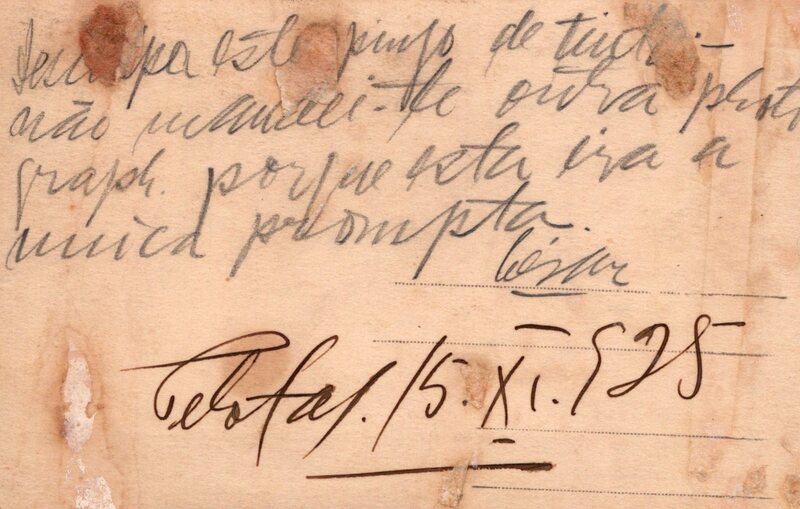 Desculpa este pingo de tinta.-
não mandei-te outra photo
graph. porque esta era a
unica prompta.
César
Pelotas. 15.XI.925